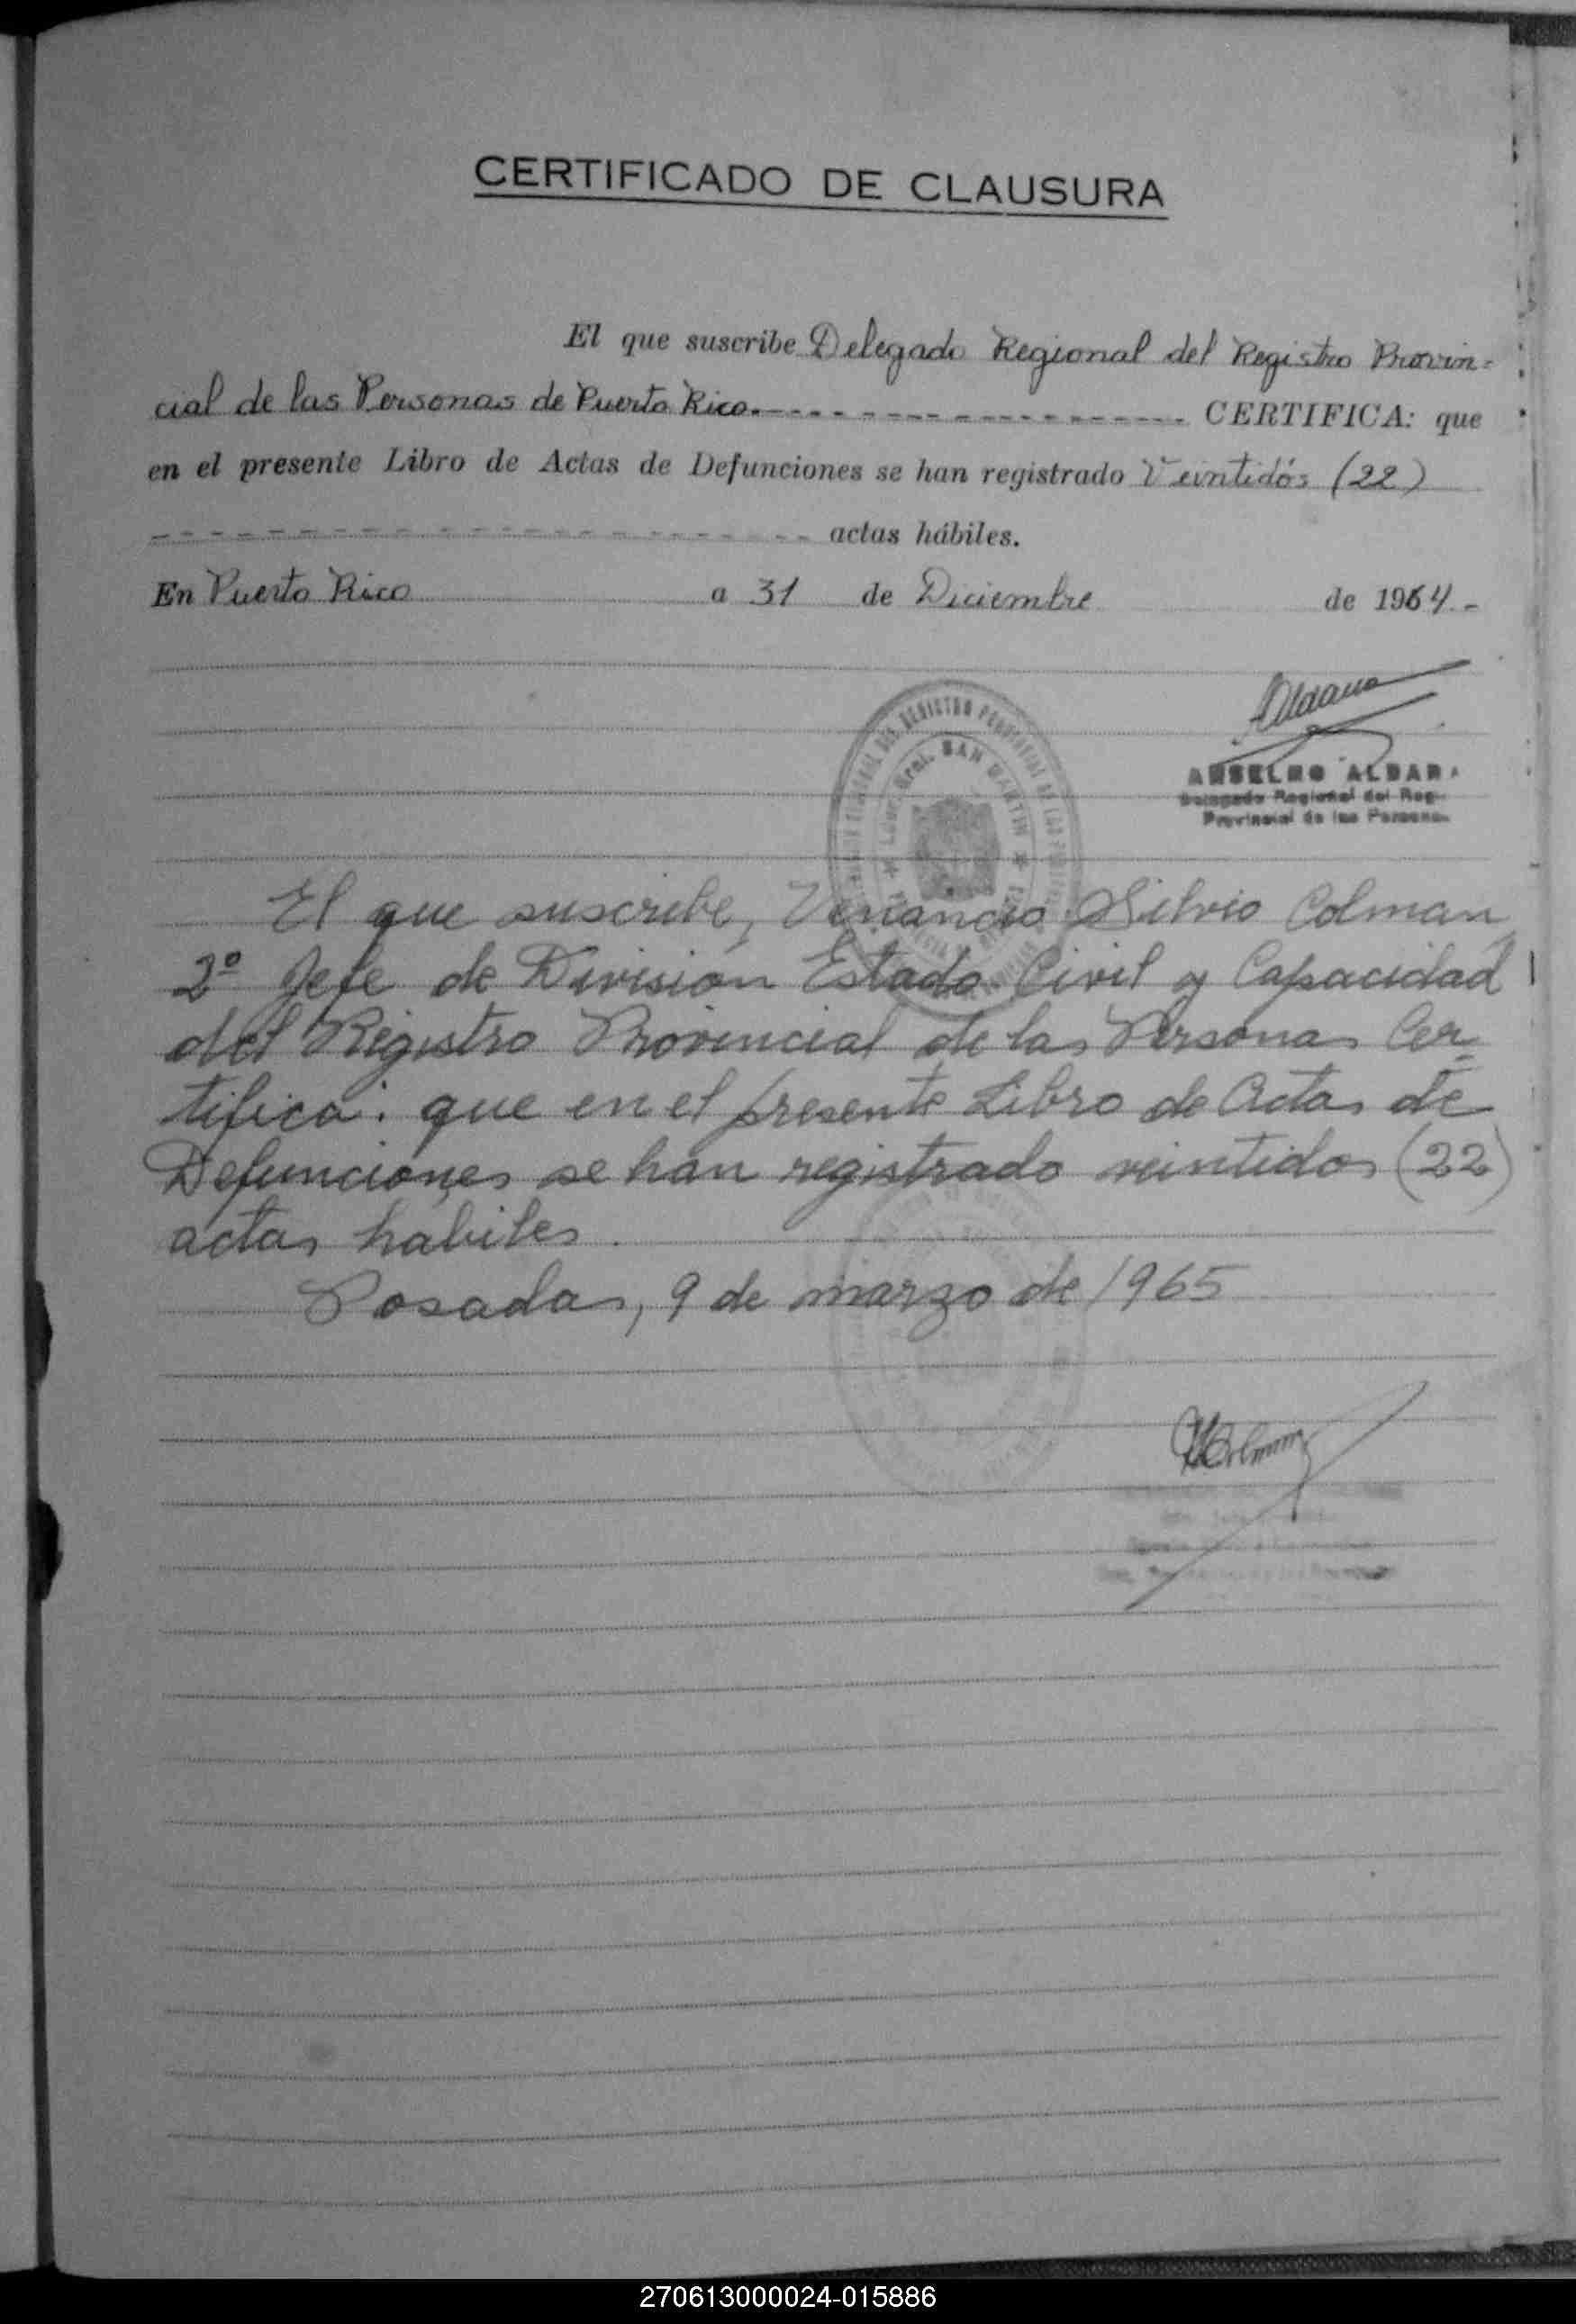 CERTIFICADO DE CLAUSURA
El que suscribe Delegado Regional del Registro Provin-
cial de las Personas de Puerto Rico.- - - - - - - - - - - - - - - - CERTIFICA: que
en el presente Libro de Actas de Defunciones se han registrado Veintidós (22)
- - - - - - - - - - - - - - - - - - - - - - - actas hábiles.
En Puerto Rico a 31 de Diciembre de 1964.-
Aldana
ANSELMO ALDAN
Delegado Regional del Reg
Provincial de las Persona
Gral. SAN MARTIN
El que suscribe, Venancio Silvio Colman,
2º Jefe de División Estado Civil y Capacidad
del Registro Provincial de las Personas Cer-
tifica: que en el presente Libro de Actas de
Defunciones se han registrado veintidos (22)
actas hábiles.
Posadas, 9 de marzo de 1965
VSColman
270613000024-015886